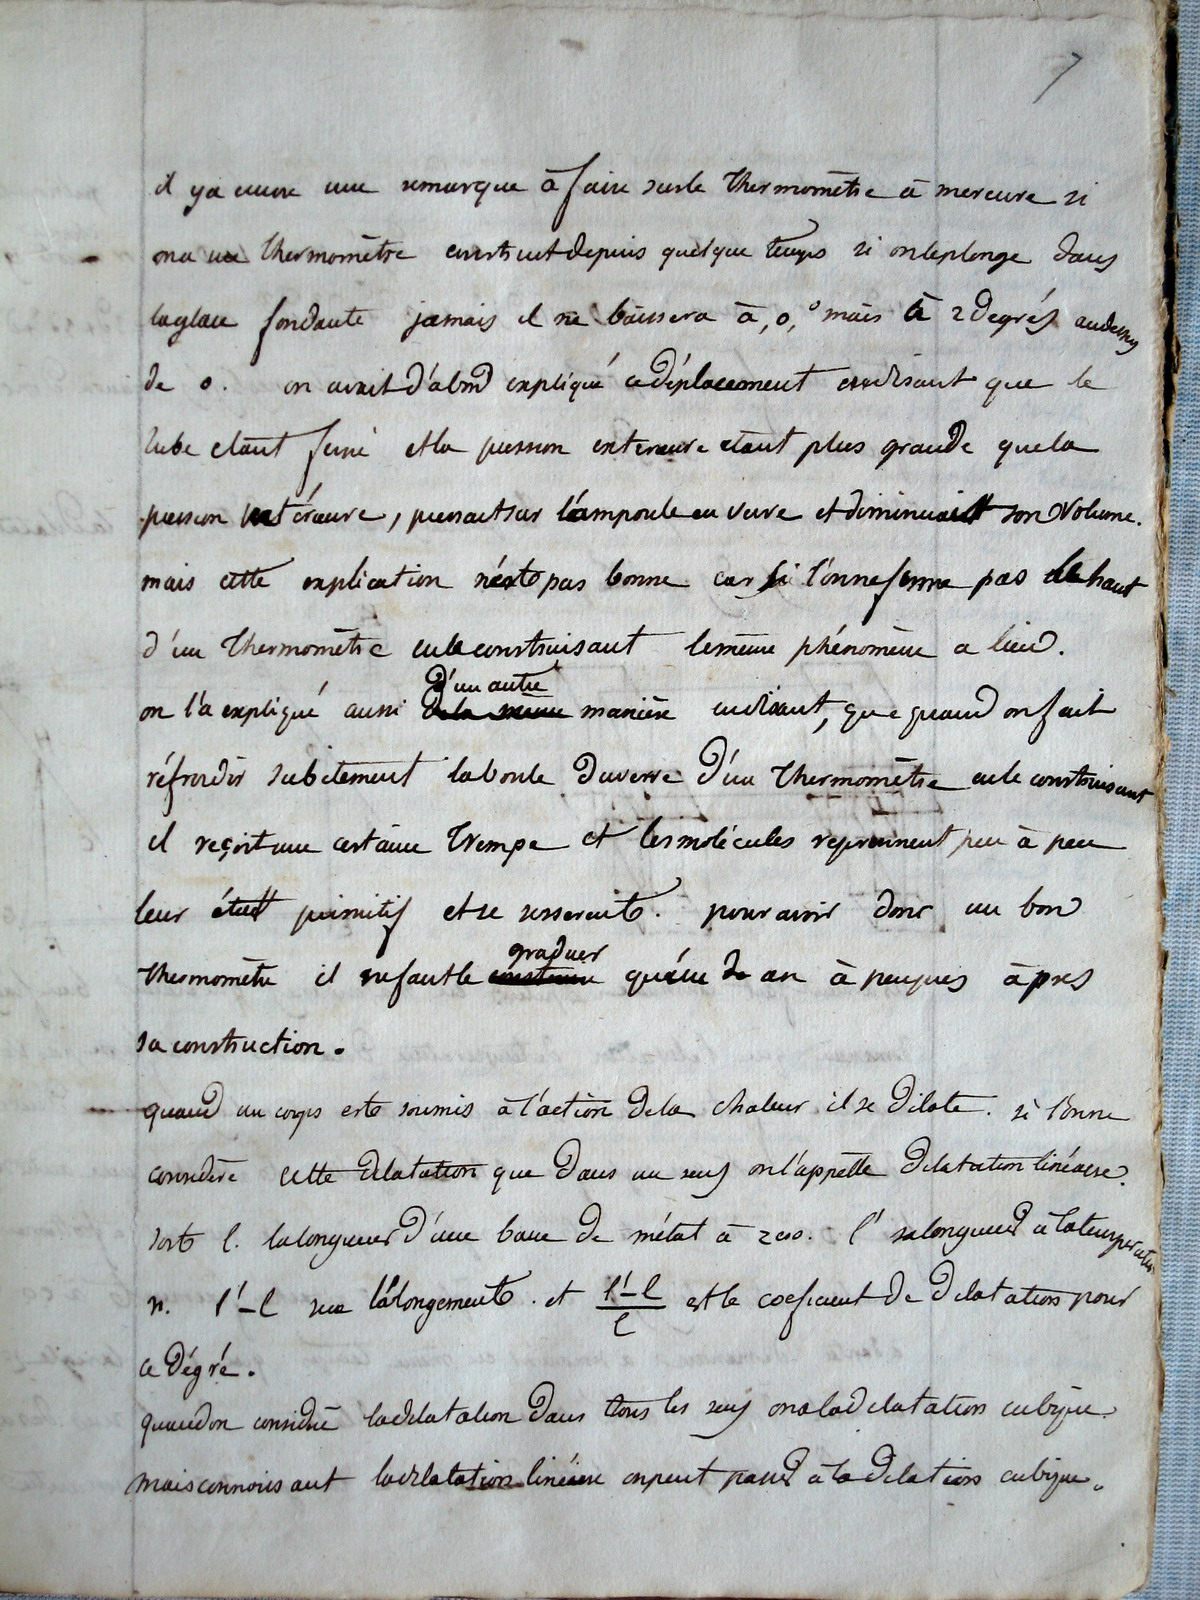 7
il y a encore une remarque à faire sur le thermomètre à mercure si
on a un thermomètre construit depuis quelque temps si on le plonge dans
la glace fondante jamais il ne baissera à, 0,° mais à 2 degrés au dessus
de 0. on avait d'abord expliqué ce déplacement en disant que le
tube etant fermé et la pression exterieure etant plus grande que la
pression intérieure, pressait sur l'ampoule en verre et diminuait son volume.
mais cette explication n'est pas bonne car si l'on ne ferme pas le haut
d'un thermomètre en le construisant le meme phénomène a lieu.
d'un autre
on l'a expliqué aussi de la même manière en disant, que quand on fait
réfroidir subitement la boule du verre d'un thermomètre en le construisant
il reçoit une certaine trempe et les molécules reprennent peu à peu
leur état primitif et se resserent. pour avoir donc un bon
graduer
thermomètre il ne faut le construire qu'une an à peu près après
sa construction.
quand un corps est soumis à l'action de la chaleur il se dilate. si l'on ne
considère cette dilatation que dans un sens on l'appelle dilatation linéaire.
soit l. la longueur d'une barre de métal à zero. l' sa longueur à la temperature
n. l'-l sera l'alongement. et l'-l/l est le coeficient de dilatation pour
ce dégré.
quand on considère la dilatation dans tous les sens on a la dilatation cubique.
mais connoissant la dilatation linéaire on peut passer à la dilation cubique.